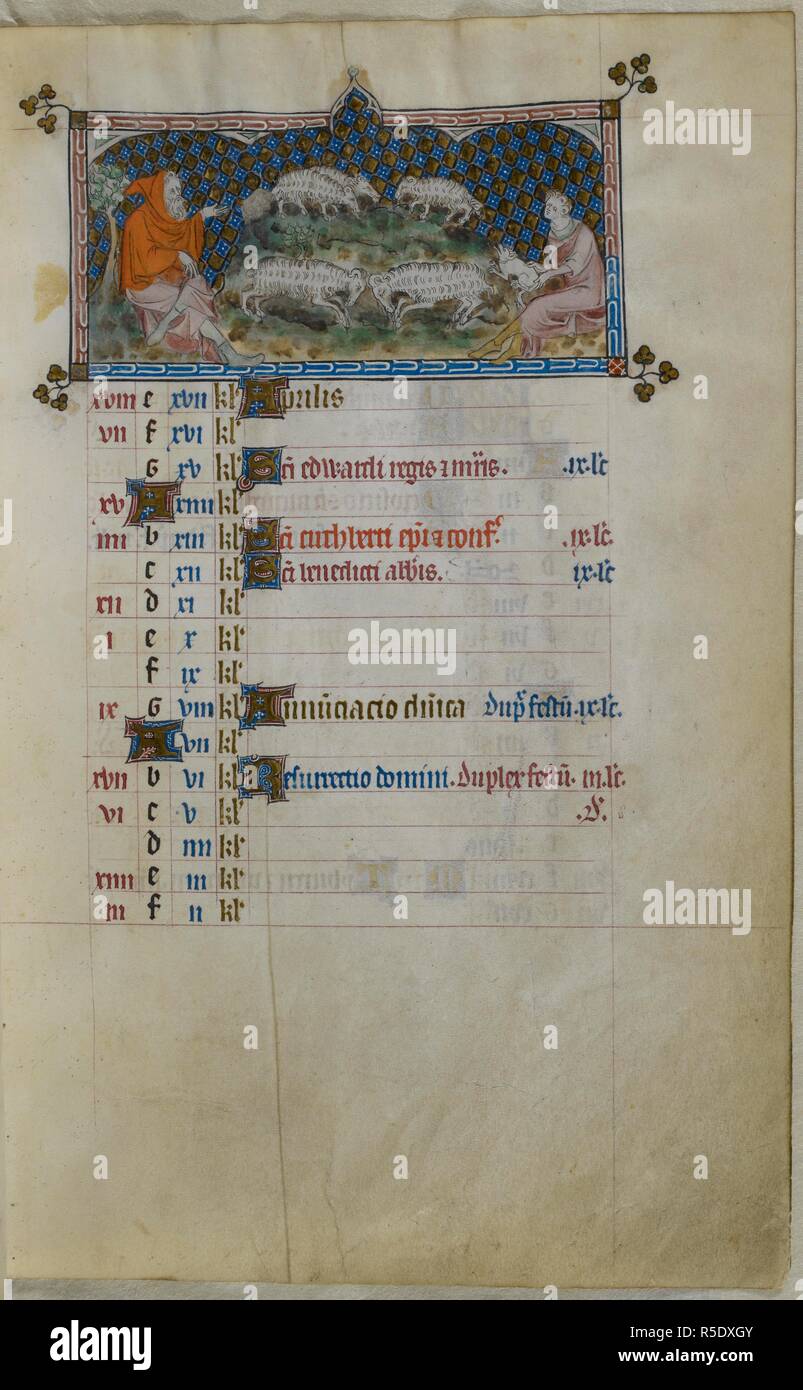 xviii e xvii kl' Aprilis
vii f xvi kl'
G xv kl' Sc̄i edwardi regis ⁊ mr̄is. .ix.lc̄
xv A xiiii kl'
iiii b xiii kl' Sc̄i cuthberti ep̄i ⁊ conf'. .ix.lc̄.
c xii kl' Sc̄i benedicti abb̄is. ix.lc̄
xii d xi kl'
i e x kl'
f ix kl'
ix G viii kl' Annūciacio dn̄ica Dup̄ festū.ix.lc̄.
A vii kl'
xvii b vi kl' Resurrectio domini. Duplex festū. iii.lc̄.
vi c v kl'
d iiii kl'
xiiii e iii kl'
iii f ii kl'
alamy
a
alamy
Image ID: R5DXGY
www.alamy.com